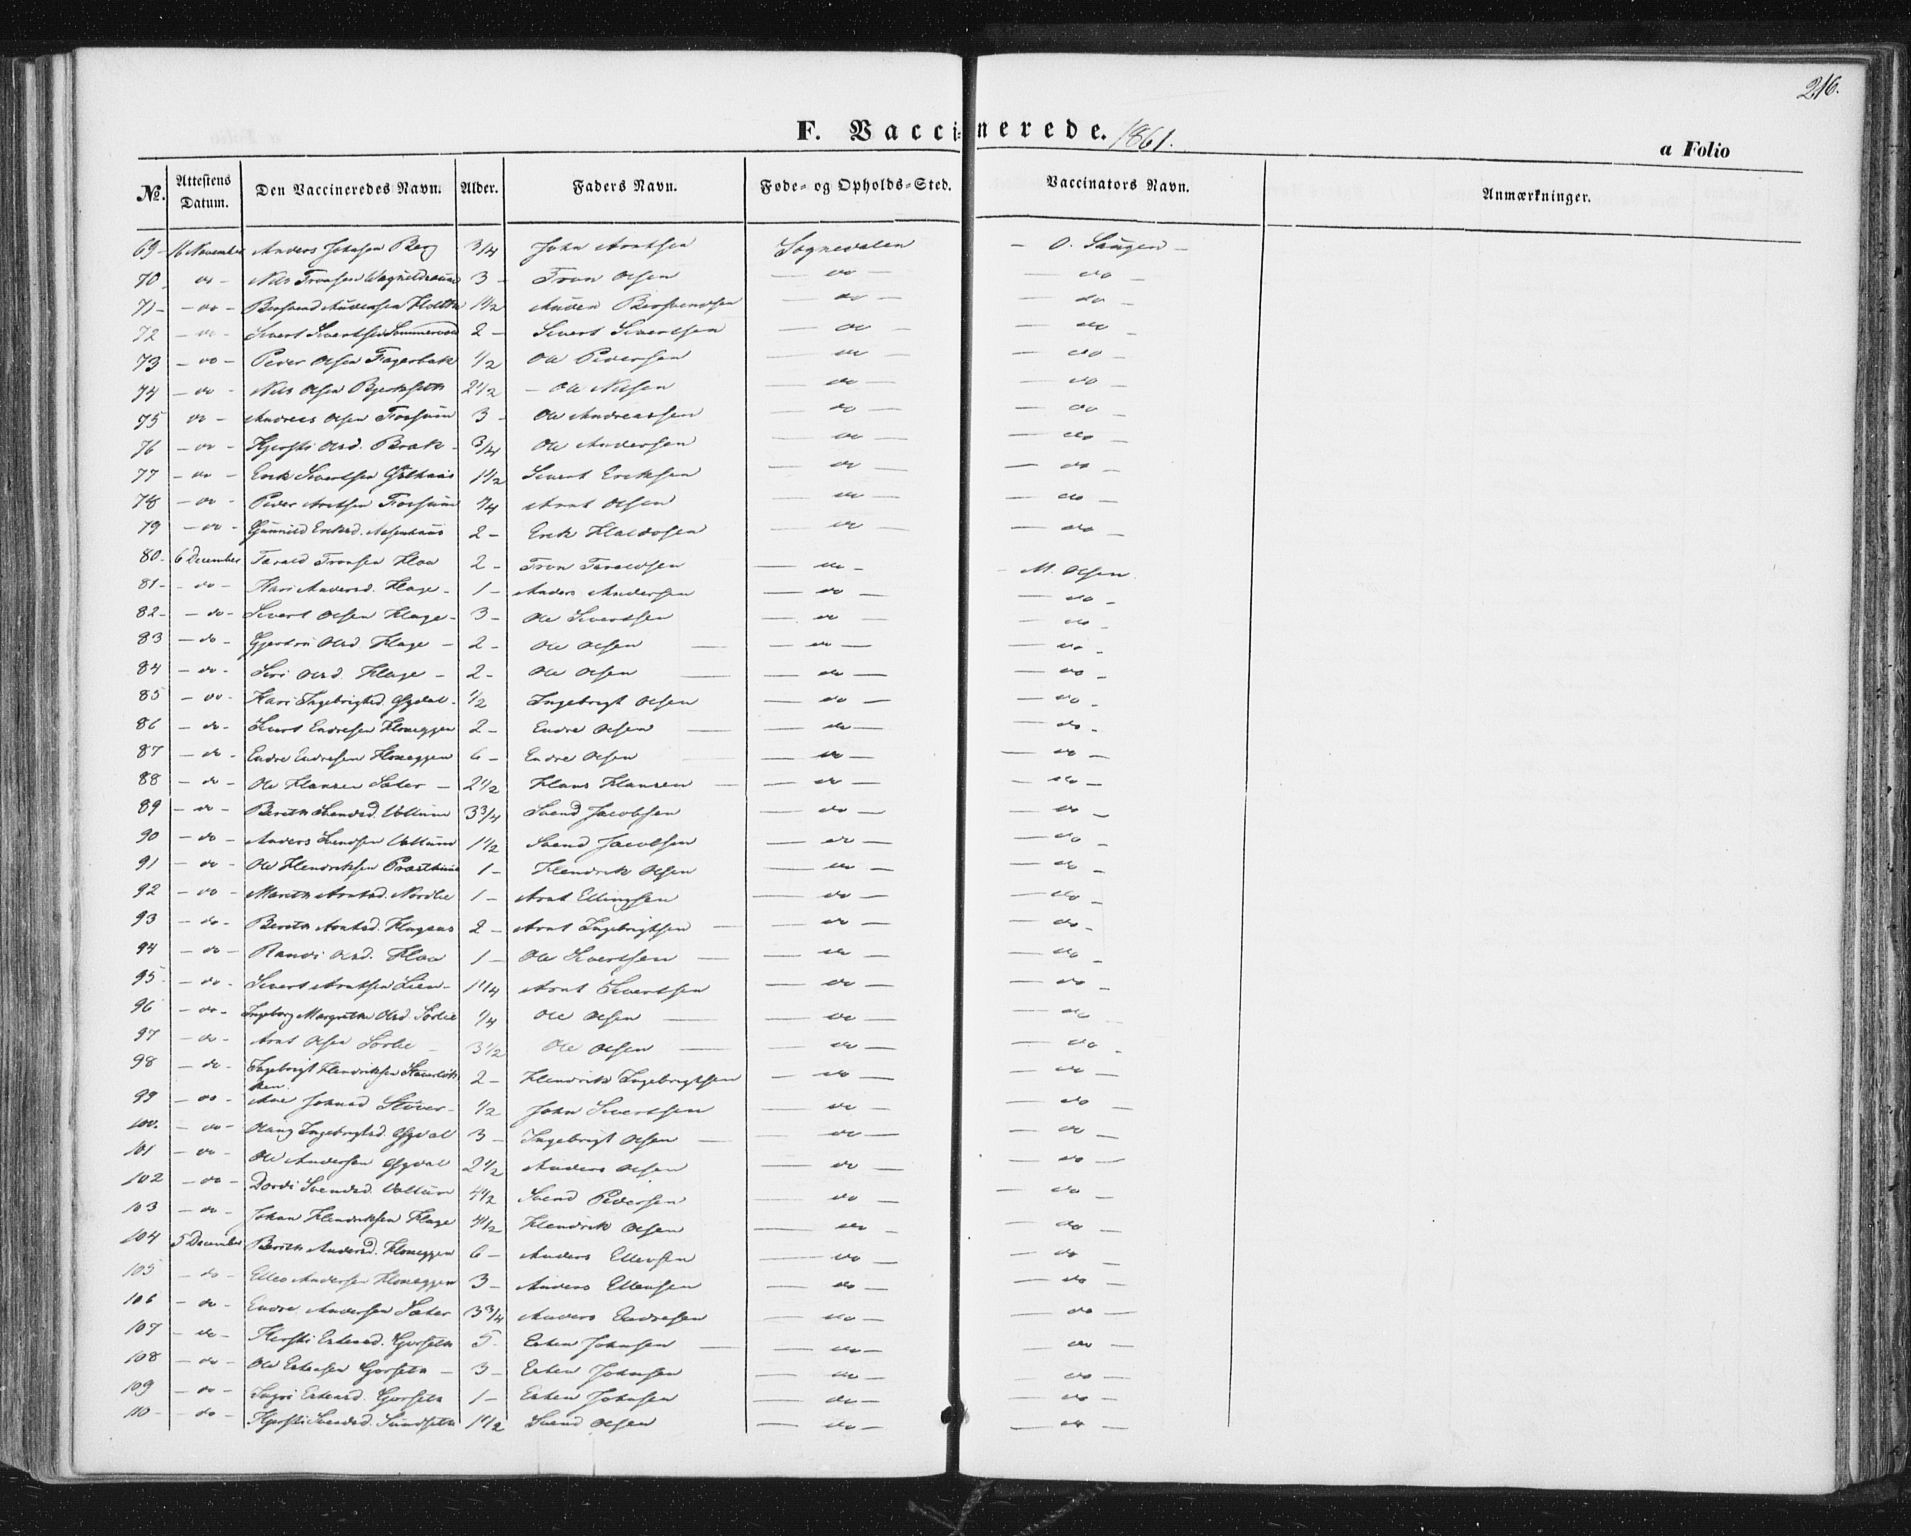 216.
F. Vaccinerede. 1861.
a Folio
No. Attestens Datum. Den Vaccineredes Navn. Alder. Faders Navn. Føde- og Opholds-Sted. Vaccinators Navn. Anmærkninger.
69 - 16 November Anders Johnsen Berg 3/4 John Arntsen Sognedalen - O. Saugen -
70 - do - Nils Tronsen 3 - Tron Olsen - do - - do -
71 - - do - Bersvend Andersen 1 1/2 Bersvendsen - do - - do -
72 - do - Sivert Sivertsen 2 - Sivert Sivertsen - do - - do -
73 - do - Peder Olsen Fagerbak 1/2 Ole Pedersen - do - - do -
74 - do - Nils Olsen Bjerkseth 2 1/2 - Ole Nilsen - do - - do -
75 do - Andreas Olsen Fossum 3 - Ole Andreassen - do - - do -
76 - do - Kjersti Olsd. Brak - 3/4 Ole Andersen - do - - do -
77 - do - Erik Sivertsen 1 1/2 Sivert Eriksen - do - - do -
78 - do - Peder Arntsen Fossum /4 Arnt Olsen - do - - do -
79 - do - Gunnild Eriksd. 2 - Erik Haldosen - do - - do -
80 - 6 December Tarald Tronsen Hoa 2 - Tron Taraldsen - do - - M. Olsen
81 - - do - Kari Andersd. Hage - 1 - Anders Andersen - do - - do -
82 - - do - Sivert Olsen Hage - 3 - Ole Sivertsen - do - - do -
83 - do - Gjertru Olsd. Hage - 2 - Ole Olsen - do - - do -
84 - do - Siri Olsd. Hage - 2 - Ole Olsen - do - - do -
85 - do - Kari Ingebrigtsd. Gydal - 1/2 Ingebrigt Olsen - do - - do -
86 - do - Sivert Endresen Honeggen 2 - Endre Olsen - do - - do -
87 - do - Endre Endresen Honeggen 6 - Endre Olsen - do - - do -
88 - do - Ole Hansen Sæter - 2 1/2 Hans Hansen - do - - do -
89 - do - Berith Svendsd. Voltum 3 3/4 Svend Jacobsen - do - - do -
90 - do - Anders Svendsen Voltum 1 1/2 Svend Jacobsen - do - - do -
91 - do - Ole Hendriksen 1 - Hendrik Olsen - do - - do -
92 - do - Marith Arntsd. Nordlie 1 - Arnt Ellingsen - do - - do -
93 - do - Berith Arntsd. 2 - Arnt Ingebrigtsen - do - - do -
94 - do - Randi Olsd. Hoa 1 - Ole Sivertsen - do - - do -
95 - do - Sivert Arntsen Lien - 1 1/4 Arnt Sivertsen - do - - do -
96 - do - Ingeborg Margrethe Olsd Sørlie 1/4 Ole Olsen - do - - do -
97 - do - Arnt Olsen Sørlie 3 1/2 Ole Olsen - do - - do -
98 - do - Ingebrigt Hendriksen 2 - Hendrik Ingebrigtsen - do - - do -
99 - do - Ane Johnsd Støver - 1/2 John Sivertsen - do - - do -
100. - do - Ingebrigtsd. Gydal 3 - Ingebrigt Olsen - do - - do -
101 - do - Ole Andersen Gydal 2 1/2 Anders Olsen - do - - do -
102 - do - Dordi Svendsd. Voltum 4 1/2 Svend Pedersen - do - - do -
103 - do - Johan Hendriksen Hage 4 1/2 Hendrik Olsen - do - - do -
104 5 December Berith Andersd. Honeggen 6 - Anders Ellevsen - do - - do -
105 - do - Ellev Andersen Honeggen 3 - Anders Ellevsen - do - - do -
106 - do - Endre Andersen Sæter 3 3/4 Anders Endresen - do - - do -
107 - do - Kersti Estensd. Gorseth 5 - Esten Johnsen - do - - do -
108 - do - Ole Estensen Gorseth - 3 - Esten Johnsen - do - - do -
109 - do - Ingri Estensd. Gorseth 1 - Esten Johnsen - do - - do -
110 - - do - Kjersti Svendsd. Sundseth 1 1/2 Svend Olsen - do - - do -